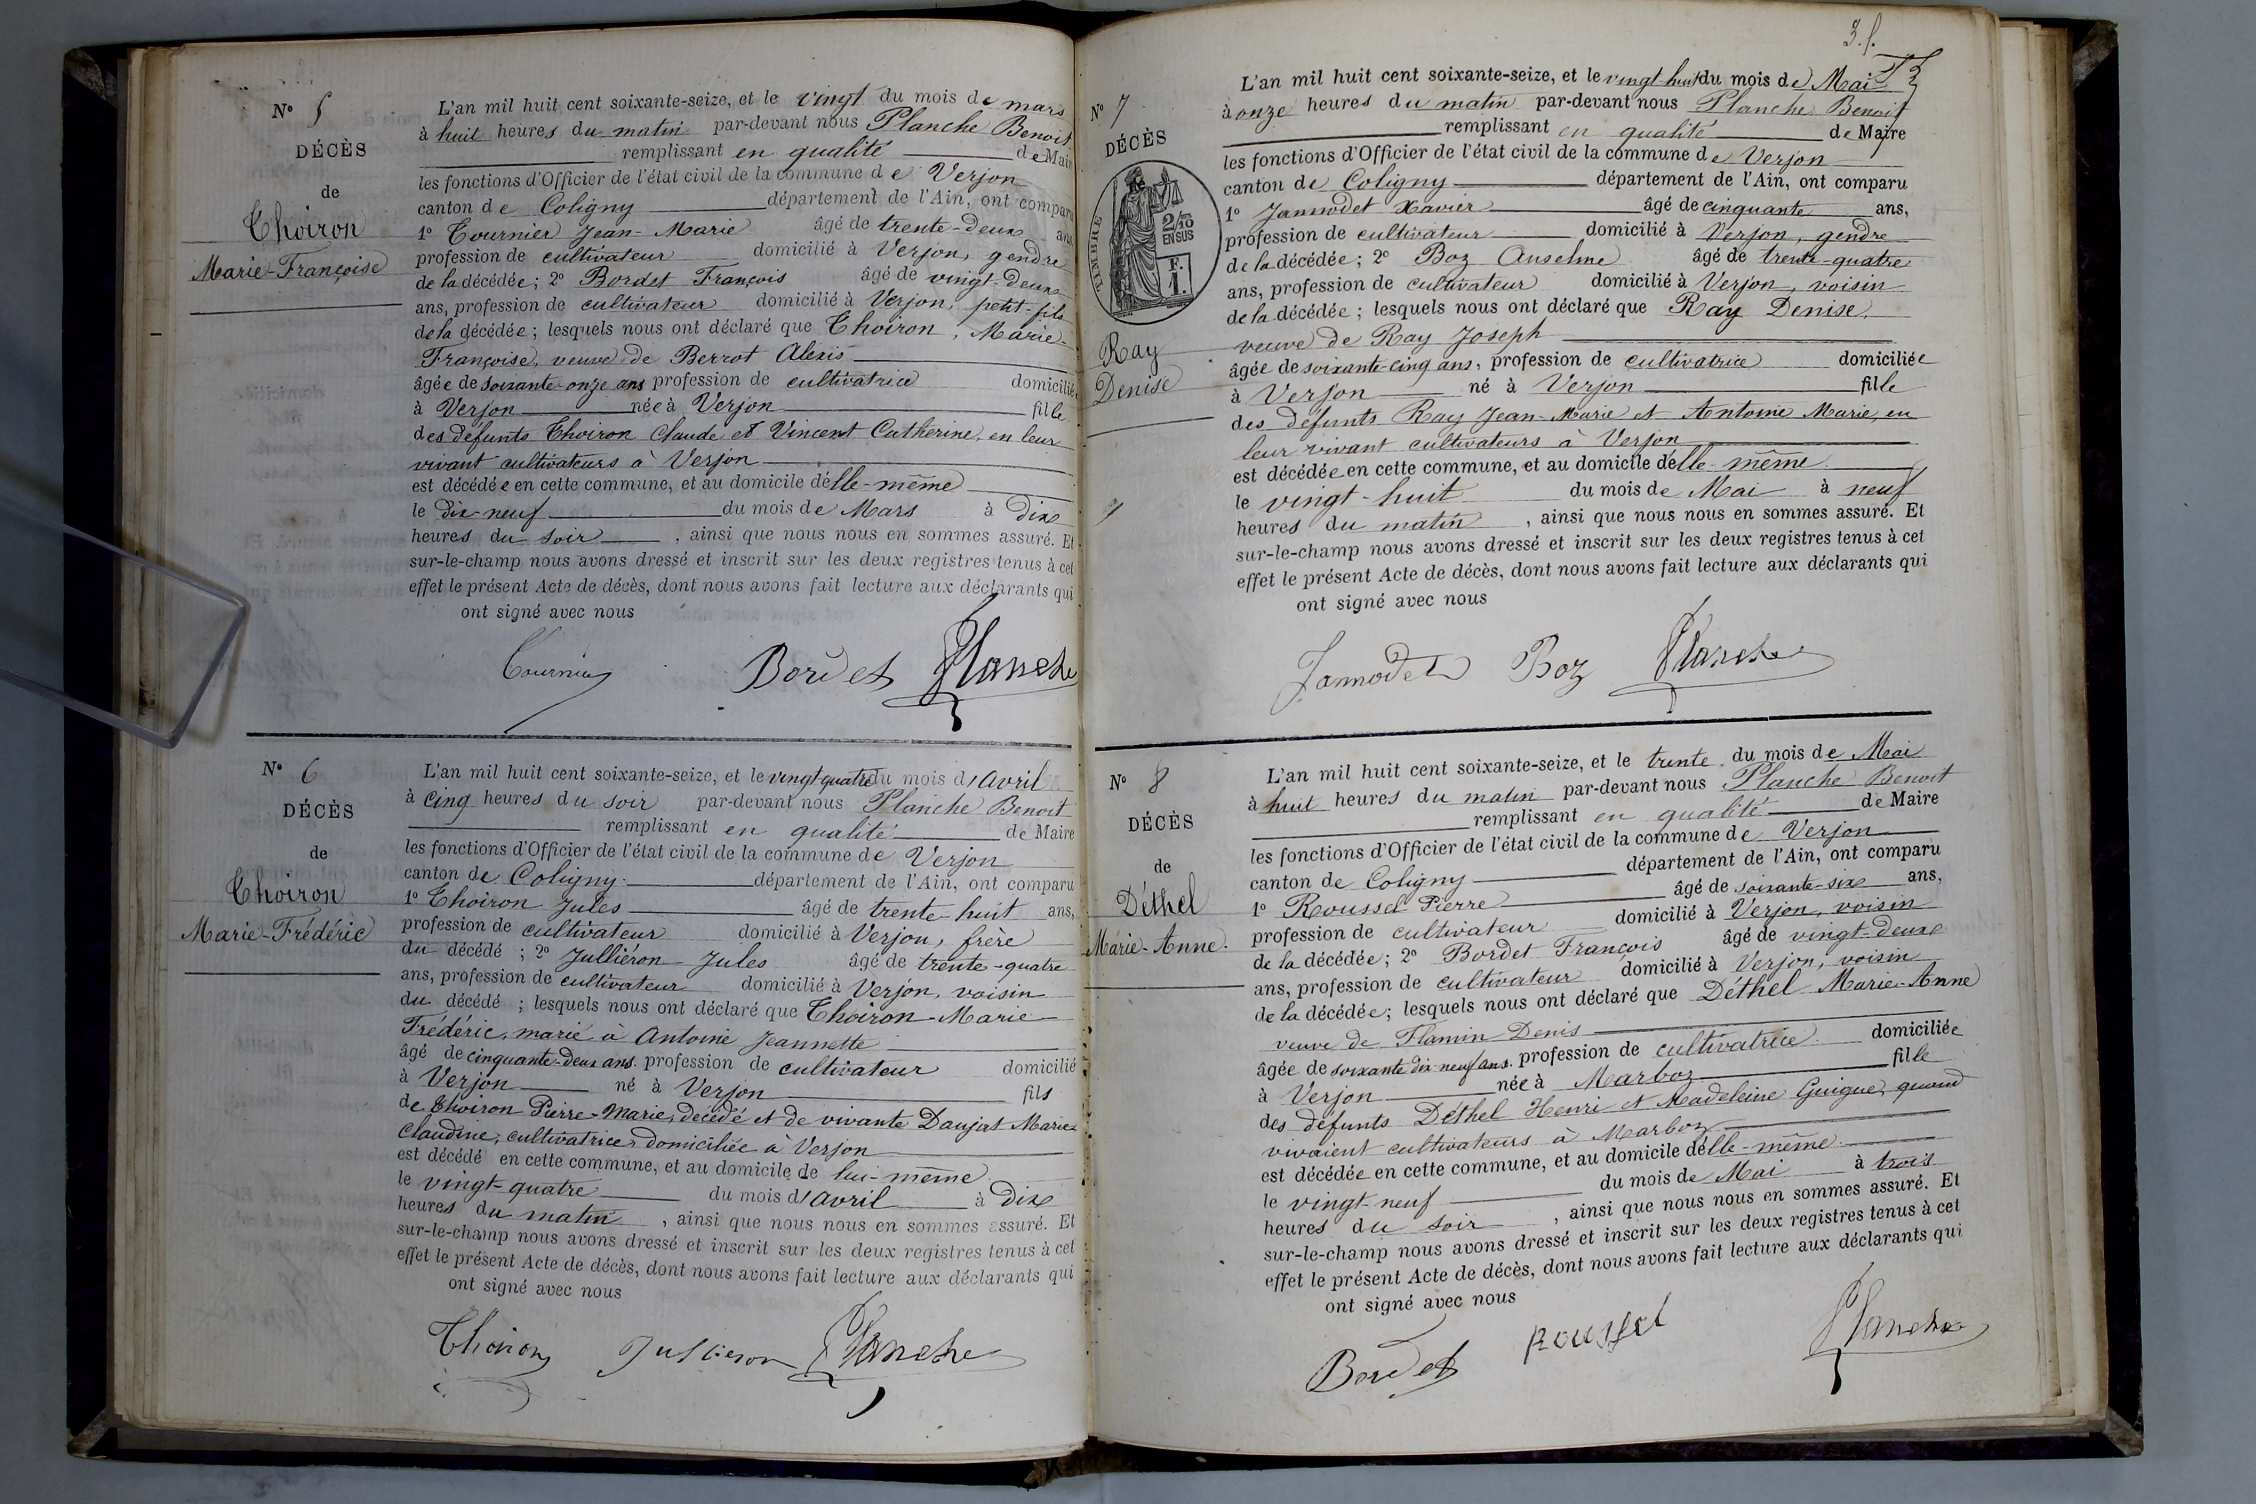 N° 5
DÉCÈS
de
Thoiron
Marie-Françoise
L'an mil huit cent soixante-seize, et le vingt du mois de mars
à huit heures du matin par-devant nous Planche Benoit
remplissant en qualité de Maire
les fonctions d'Officier de l'état civil de la commune de Verjon
canton de Coligny département de l'Ain, ont comparu
1° Tournier Jean-Marie âgé de trente-deux ans
profession de cultivateur domicilié à Verjon, gendre
de la décédée; 2° Bordet François âgé de vingt-deux
ans, profession de cultivateur domicilié à Verjon, petit-fils
de la décédée; lesquels nous ont déclaré que Thoiron, Marie-
Françoise, veuve de Berrot Alexis
âgée de soixante-onze ans profession de cultivatrice domiciliée
à Verjon née à Verjon fille
des défunts Thoiron Claude et Vincent Catherine, en leur
vivant cultivateurs à Verjon
est décédée en cette commune, et au domicile d'elle-même
le dix-neuf du mois de Mars à dix
heures du soir, ainsi que nous nous en sommes assuré. Et
sur-le-champ nous avons dressé et inscrit sur les deux registres tenus à cet
effet le présent Acte de décès, dont nous avons fait lecture aux déclarants qui
ont signé avec nous
Tournier Bordet Planche
N° 6
DÉCÈS
de
Thoiron
Marie-Frédéric
L'an mil huit cent soixante-seize, et le vingt quatre du mois d'avril
à cinq heures du soir par-devant nous Planche Benoit
remplissant en qualité de Maire
les fonctions d'Officier de l'état civil de la commune de Verjon
canton de Coligny département de l'Ain, ont comparu
1° Thoiron Jules âgé de trente-huit ans,
profession de cultivateur domicilié à Verjon, frère
du décédé; 2° Julliéron Jules âgé de trente-quatre
ans, profession de cultivateur domicilié à Verjon, voisin
du décédé; lesquels nous ont déclaré que Thoiron-Marie-
Frédéric, marié à Antoine Jeannette
âgé de cinquante-deux ans. profession de cultivateur domicilié
à Verjon né à Verjon fils
de Thoiron Pierre-Marie, décédé et de vivante Daujat Marie-
Claudine, cultivatrice, domiciliée à Verjon
est décédé en cette commune, et au domicile de lui-même
le vingt-quatre du mois d'avril à dix
heures du matin, ainsi que nous nous en sommes assuré. Et
sur-le-champ nous avons dressé et inscrit sur les deux registres tenus à cet
effet le présent Acte de décès, dont nous avons fait lecture aux déclarants qui
ont signé avec nous
Thoiron Julliéron Planche
3. f.
N° 7
DÉCÈS
TIMBRE
2/10
EN SUS
F.
1.
Ray
Denise
L'an mil huit cent soixante-seize, et le vingt-huit du mois de Mai
à onze heures du matin par-devant nous Planche Benoit
remplissant en qualité de Maire
les fonctions d'Officier de l'état civil de la commune de Verjon
canton de Coligny département de l'Ain, ont comparu
1° Jannodet Xavier âgé de cinquante ans,
profession de cultivateur domicilié à Verjon, gendre
de la décédée; 2° Boz Anselme âgé de trente-quatre
ans, profession de cultivateur domicilié à Verjon, voisin
de la décédée; lesquels nous ont déclaré que Ray Denise,
veuve de Ray Joseph
âgée de soixante-cinq ans, profession de cultivatrice domiciliée
à Verjon né à Verjon fille
des défunts Ray Jean-Marie et Antoine Marie, en
leur vivant cultivateurs à Verjon
est décédée en cette commune, et au domicile d'elle-même
le vingt-huit du mois de Mai à neuf
heures du matin, ainsi que nous nous en sommes assuré. Et
sur-le-champ nous avons dressé et inscrit sur les deux registres tenus à cet
effet le présent Acte de décès, dont nous avons fait lecture aux déclarants qui
ont signé avec nous
Jannodet Boz Planche
N° 8
DÉCÈS
de
Déthel
Marie-Anne.
L'an mil huit cent soixante-seize, et le trente du mois de Mai
à huit heures du matin par-devant nous Planche Benoit
remplissant en qualité de Maire
les fonctions d'Officier de l'état civil de la commune de Verjon
canton de Coligny département de l'Ain, ont comparu
1° Roussel Pierre âgé de soixante-six ans,
profession de cultivateur domicilié à Verjon, voisin
de la décédée; 2° Bordet François âgé de vingt-deux
ans, profession de cultivateur domicilié à Verjon, voisin
de la décédée; lesquels nous ont déclaré que Déthel Marie-Anne
veuve de Flamin Denis
âgée de soixante dix-neuf ans. profession de cultivatrice domiciliée
à Verjon née à Marboz fille
des défunts Déthel Henri et Madeleine Guigue, quand
vivaient cultivateurs à Marboz
est décédée en cette commune, et au domicile d'elle-même
le vingt-neuf du mois de Mai à trois
heures du soir, ainsi que nous nous en sommes assuré. Et
sur-le-champ nous avons dressé et inscrit sur les deux registres tenus à cet
effet le présent Acte de décès, dont nous avons fait lecture aux déclarants qui
ont signé avec nous
Bordet Roussel Planche